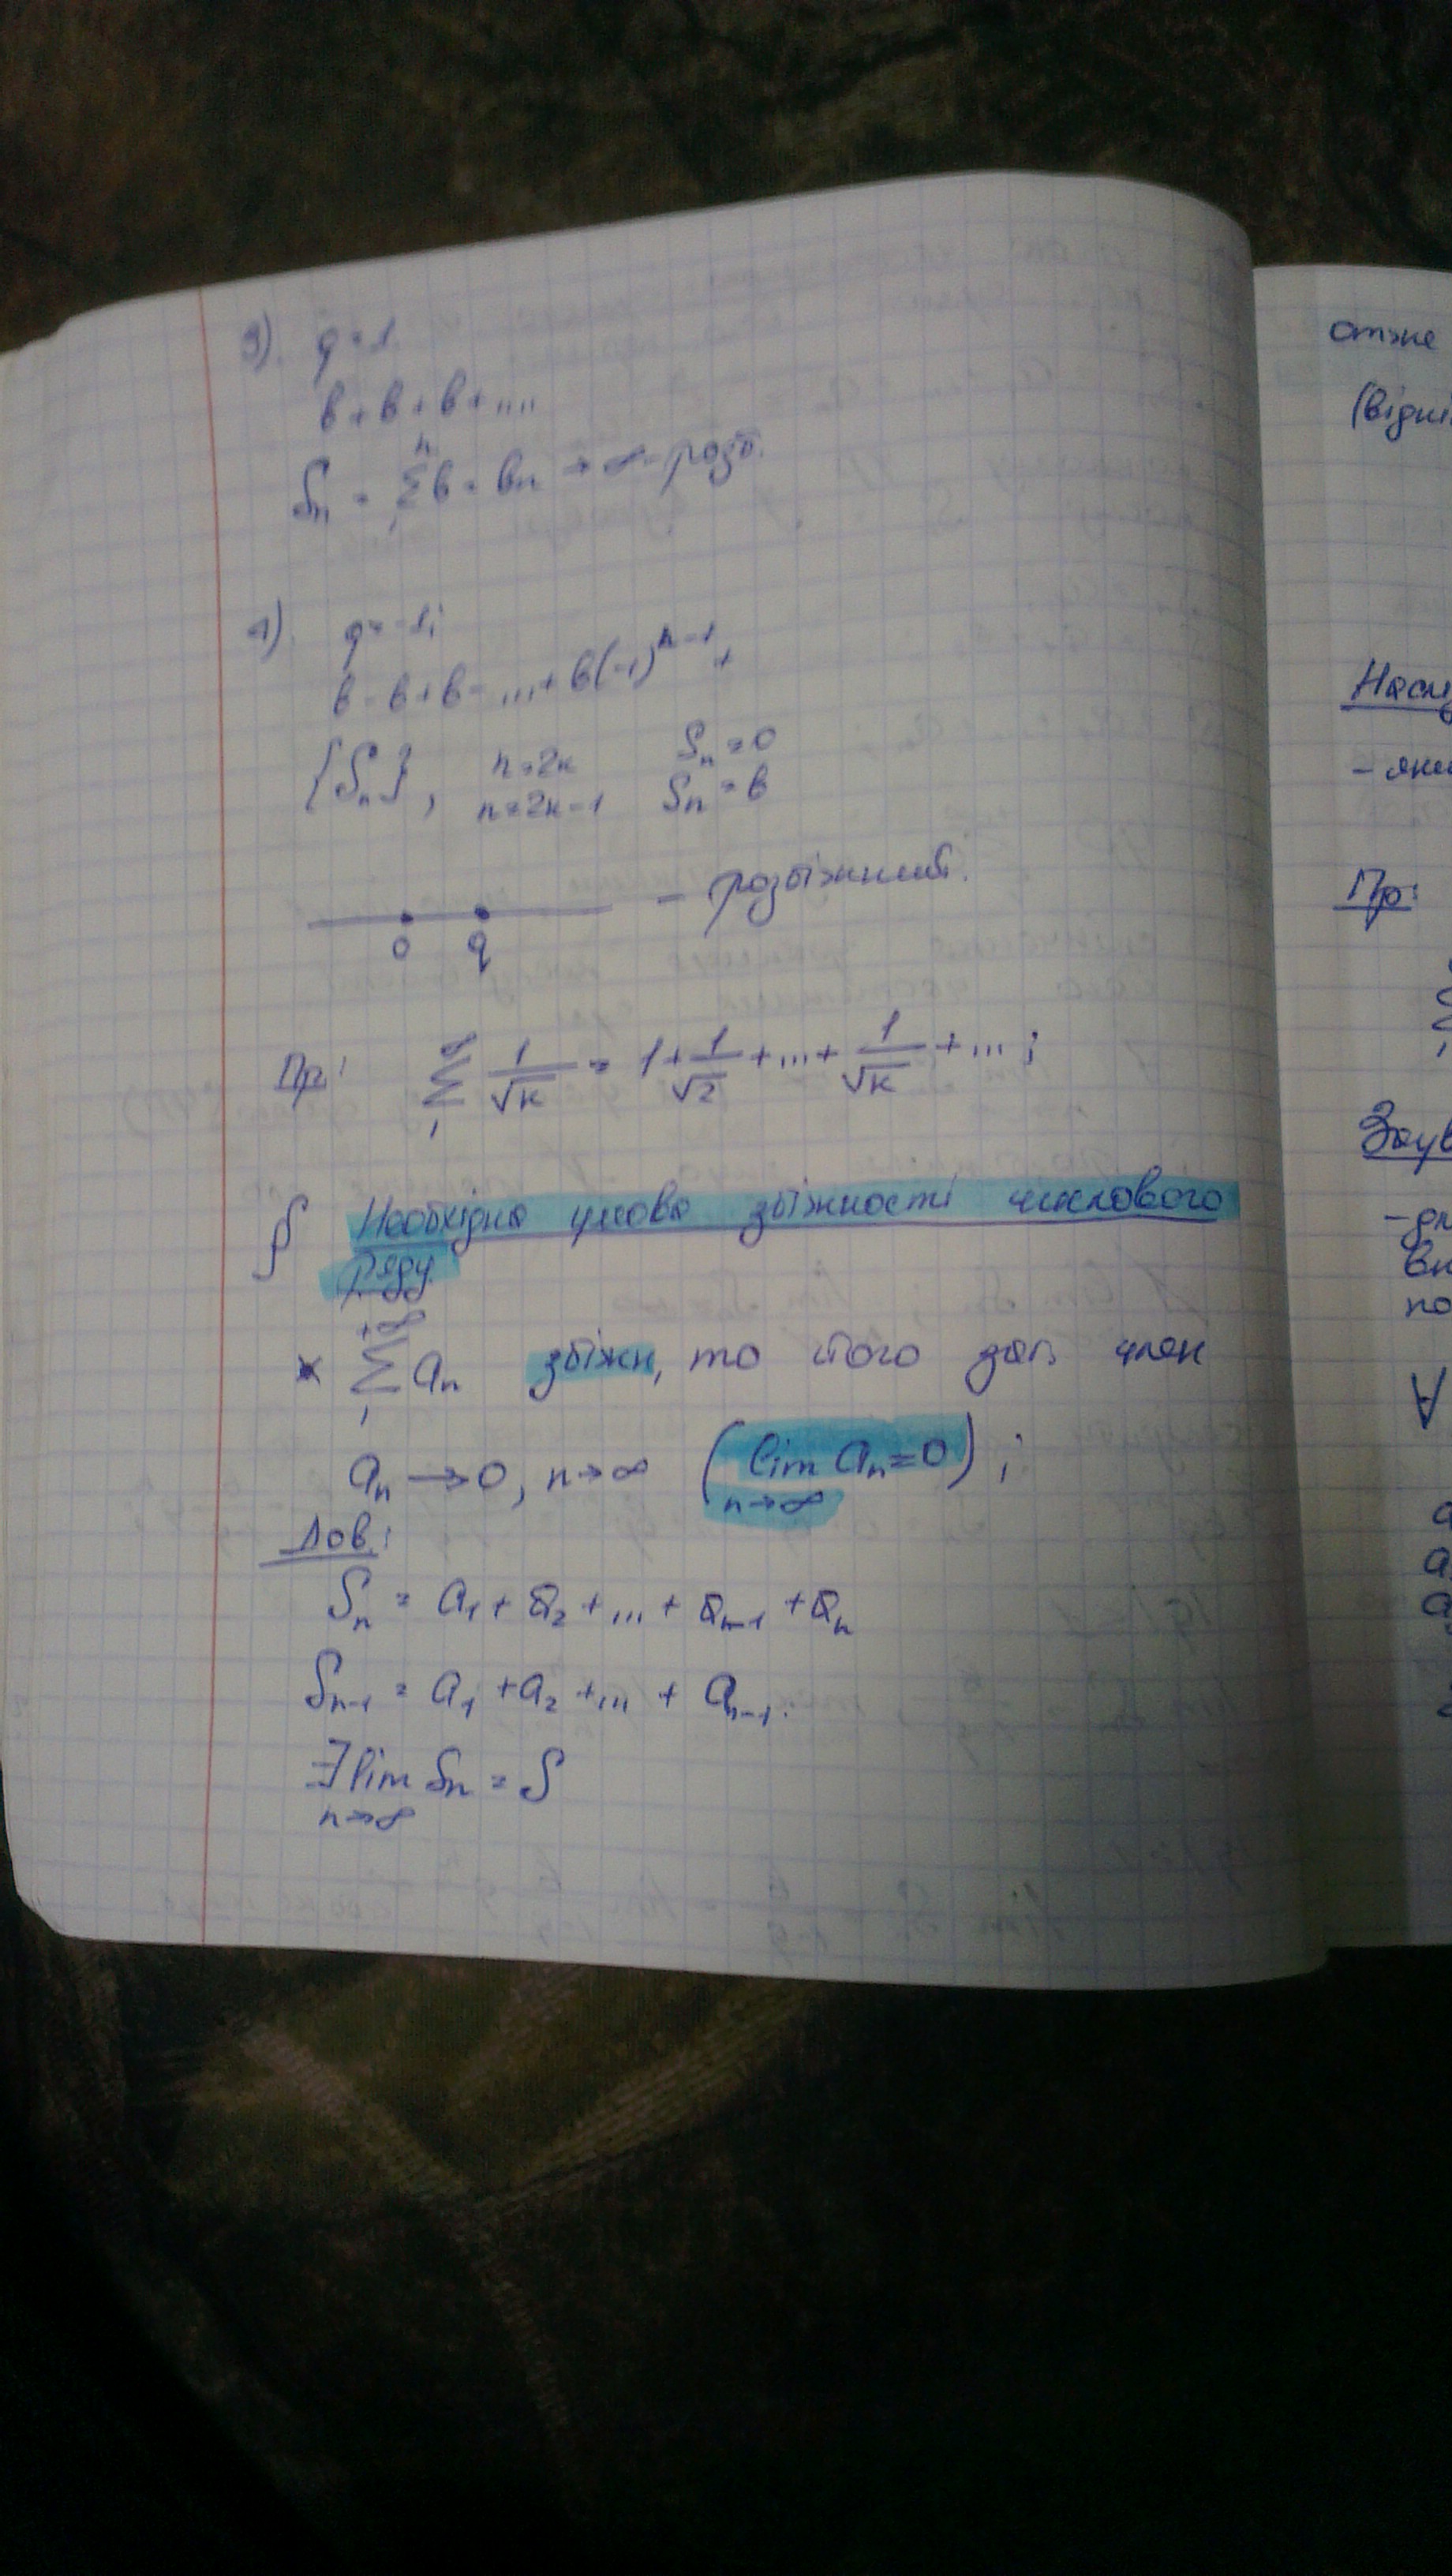 3). q = 1
b + b + b + ....
Sₙ = ∑₁ⁿ b = bn → ∞ - розб.
4). q = -1;
b - b + b - ... + b(-1)ⁿ⁻¹ +
{Sₙ}, n = 2k Sₙ = 0
n = 2k - 1 Sₙ = b
- розбіжний.
0 q
Пр: ∑₁^∞ 1/√k = 1 + 1/√2 + ... + 1/√k + ... ;
Необхідна умова збіжності числового
ряду.
∑₁^{+∞} aₙ збіжн, то його заг. член
aₙ → 0, n → ∞ (lim_{n→∞} aₙ = 0) ;
Дов:
Sₙ = a₁ + a₂ + ... + aₙ₋₁ + aₙ
Sₙ₋₁ = a₁ + a₂ + ... + aₙ₋₁.
∃ lim_{n→∞} Sₙ = S
отже
(відмі
Насл
- якщ
Пр:
Заув
по
∀
a
a
a